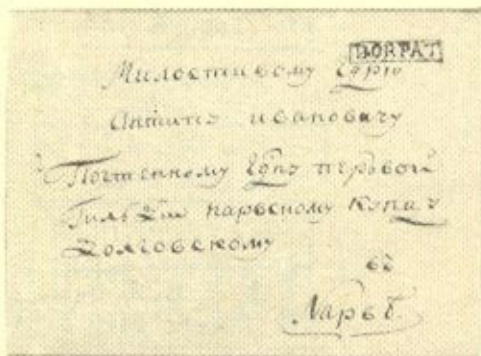 DORPAT
Милостивому Гдрю
Антипъ ивановичу
Почтенному Гднъ первой
Гильдіи нарвскому купцу
Долговскому
въ
Нарвѣ.